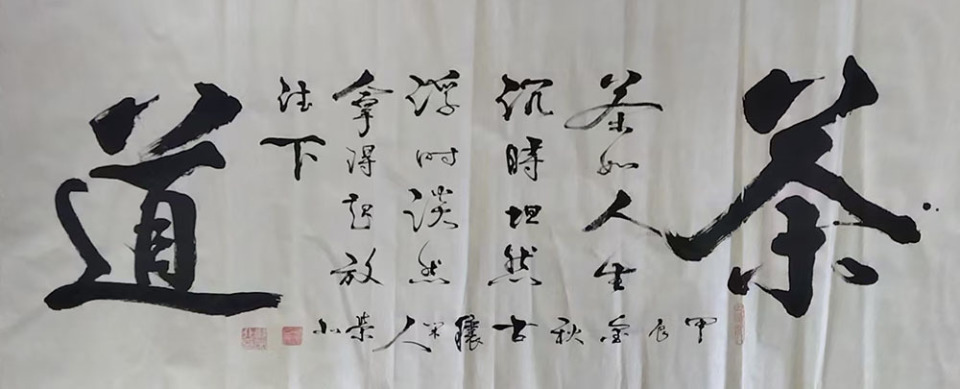 茶
茶如人生
沉時坦然
浮时淡然
拿得起放
得下
道
甲辰金秋古穰人荣